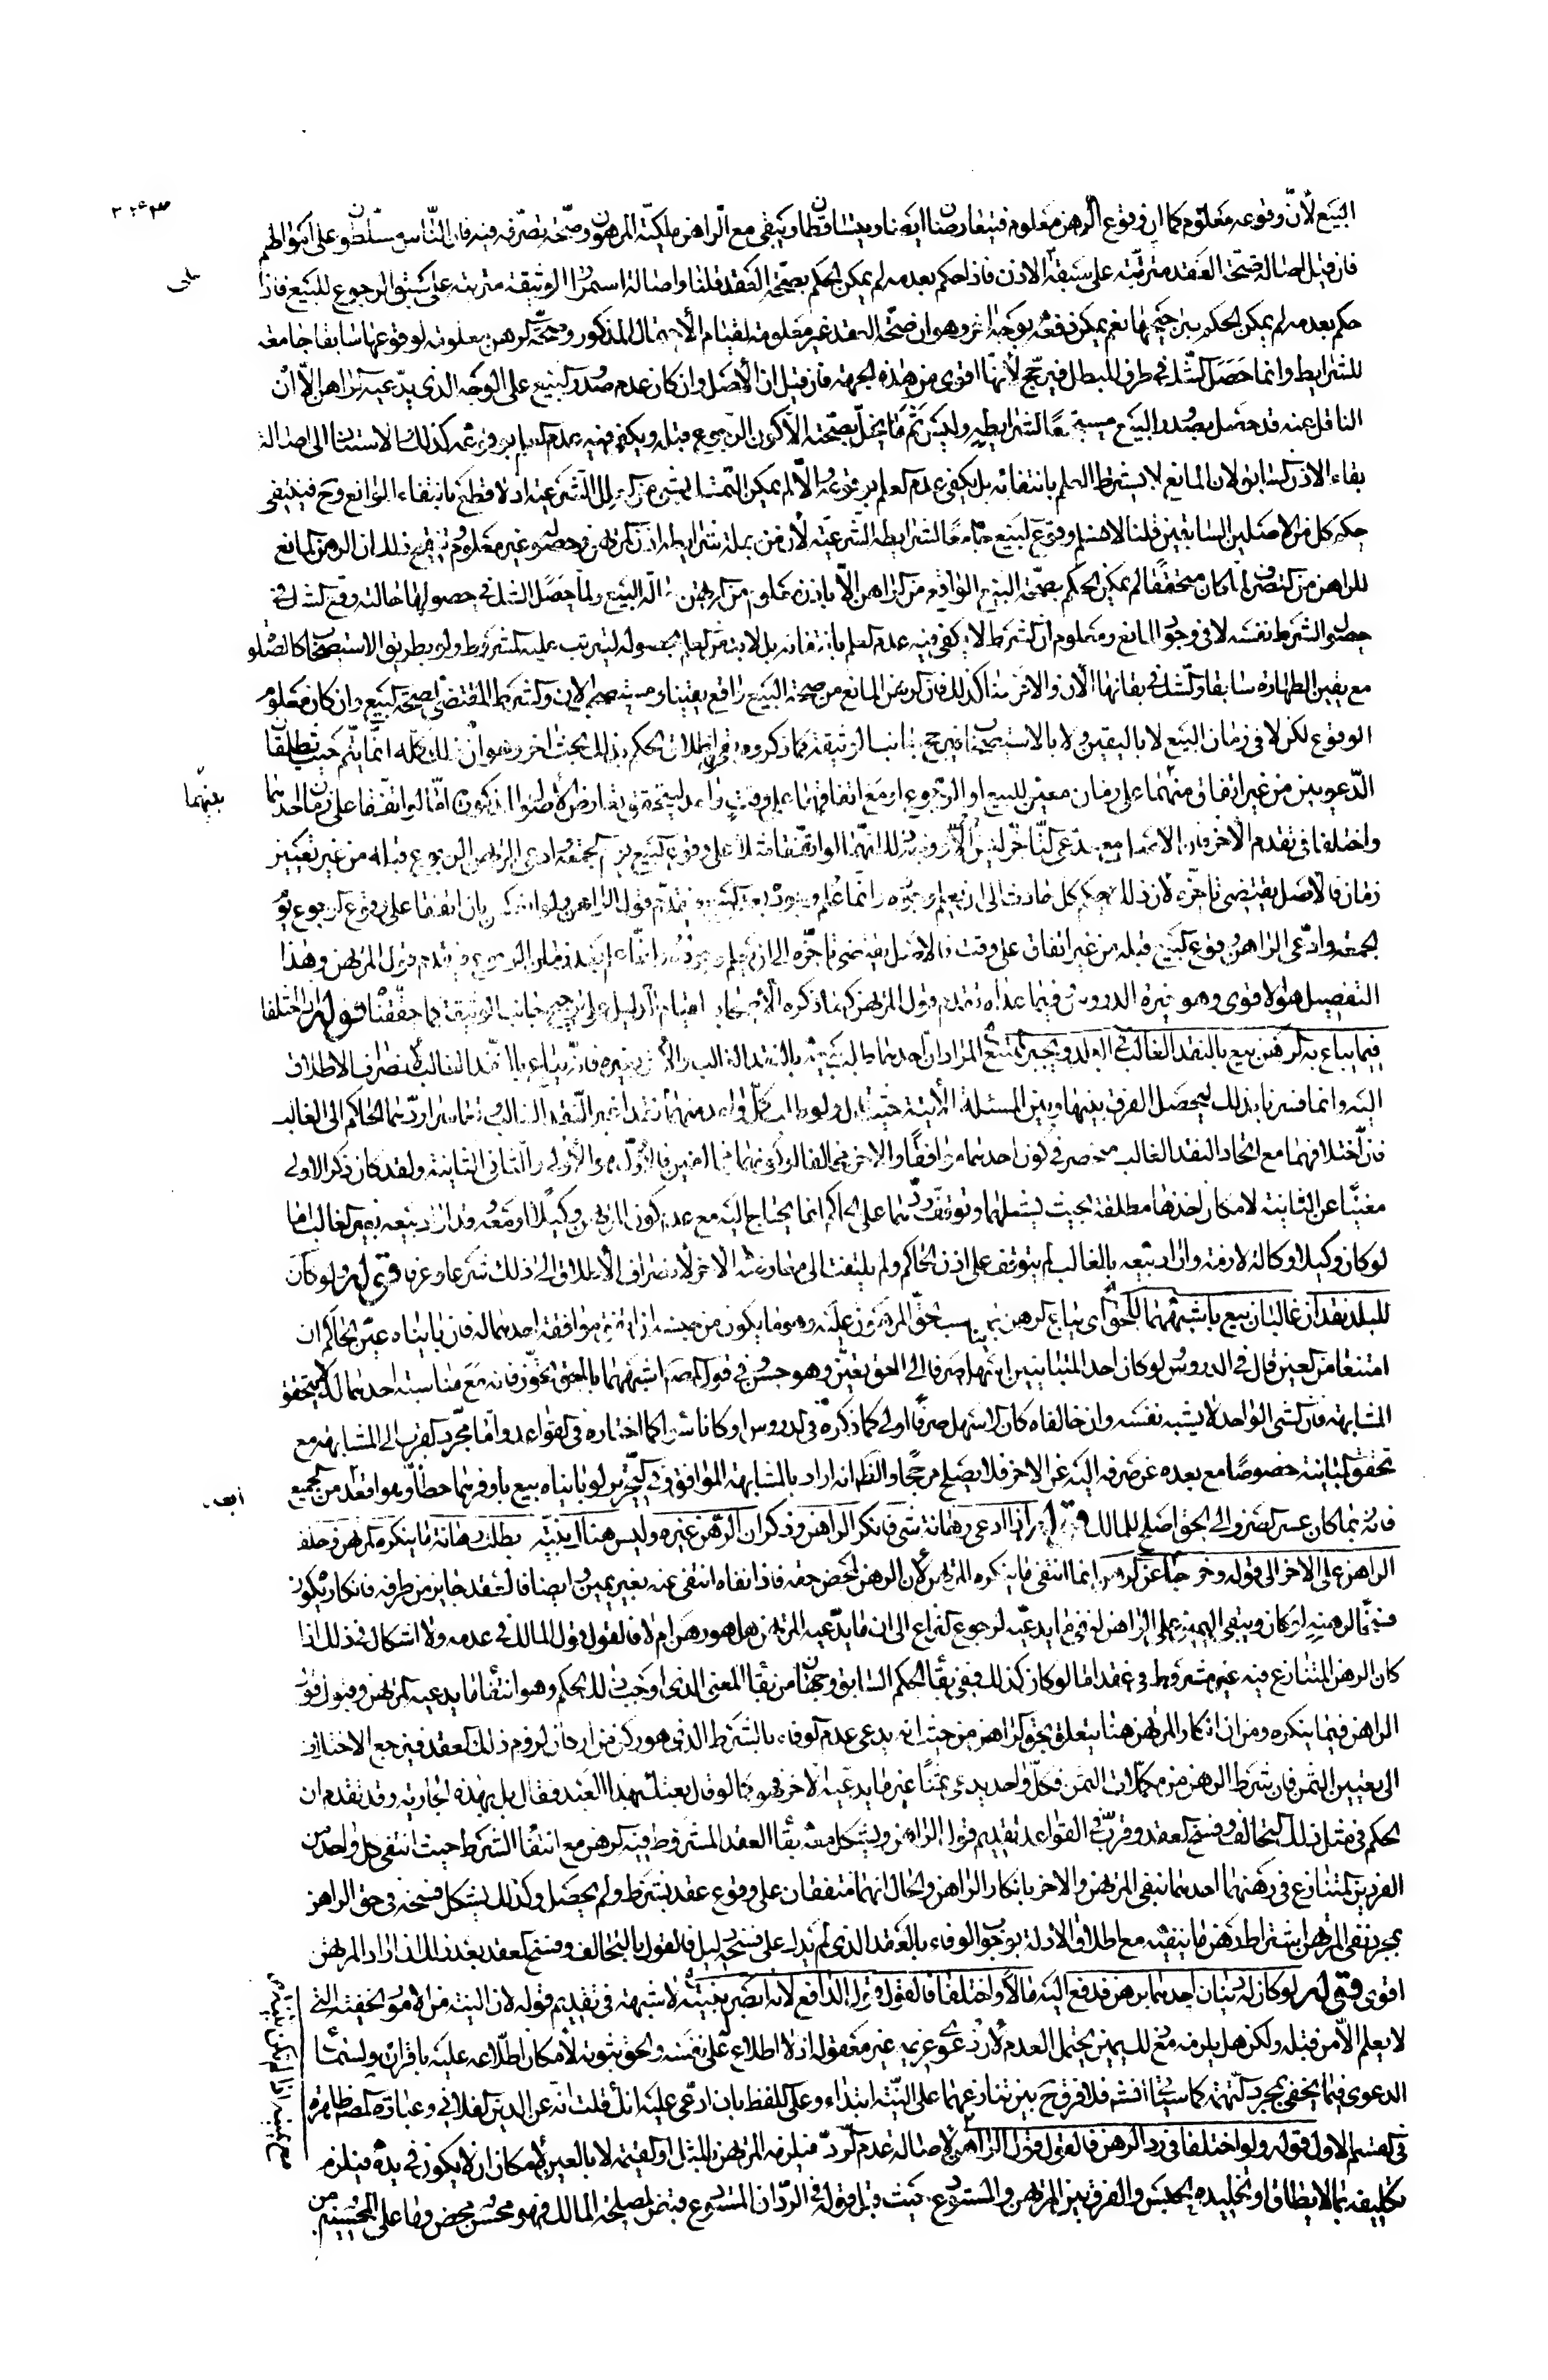 البيع لأن وقوعه معلوم كما ان وقوع الرهن معلوم فيتعارضان ايضا ويتساقطان ويبقى مع الراهن ملكية المرهون وصحة تصرفه فيه فان الناس مسلطون على اموالهم
فان قيل اصالة صحة العقد مترتبة على سبق الاذن فاذا حكم بعدمه لم يمكن الحكم بصحة العقد قلنا واصالة استمرار الوثيقة مترتبة على سبق الرجوع للبيع فاذا
حكم بعدمه لم يمكن الحكم بين حكمهما نعم يمكن دفعه بوجه اخر وهو ان صحة العقد غير معلومة لقيام الاحتمال المذكور وصحة الرهن معلومة لوقوعها سابقا جامعة
للشرايط وانما حصل الشك في طرف المبطل فيرجح لأنها اقوى من هذه الجهة فان قيل ان الأصل وان كان عدم صدور البيع على الوجه الذي يدعيه الراهن الا ان
الناقل عنه قد حصل بصدور البيع مستجمعا لشرايطه وليس ثم ما يخل بصحته الا كون الرجوع قبله ويكفي فيه عدم العلم بوقوعه كذلك الاستناد الى اصالة
بقاء الاذن السابق لان المانع لا يشترط العلم بانتفائه بل يكفي عدم العلم بوقوعه والا لم يمكن التمسك بشيء من العلل الشرعية اذ لا قطع بانتفاء الموانع وح فينتفي
حكم كل من الاصلين السابقين قلنا لا نسلم وقوع البيع جامعا لشرايطه الشرعية لأن من جملة شرايطه اذن المرتهن وحصوله غير معلوم توضيح ذلك ان الرهن المانع
للراهن من التصرف لما كان متحققا لم يمكن الحكم بصحة البيع الواقع من الراهن الا باذن معلوم من المرتهن حالة البيع ولما حصل الشك في حصولها حالته وقع الشك في
حصول الشرط نفسه لا في وجود المانع ومعلوم ان الشرط لا يكفي فيه عدم العلم بانتفائه بل لا بد من العلم بحصوله ليترتب عليه المشروط ولو بطريق الاستصحاب كالصلوة
مع يقين الطهارة سابقا والشك في بقائها الآن والامر هنا كذلك فان الرهن المانع من صحة البيع واقع يقينا ومستصحب الان والشرط المقتضي لصحة البيع وان كان معلوم
الوقوع لكن لا في زمان البيع لا باليقين ولا بالاستصحاب فيرجح جانب الوثيقة كما ذكروه بقي في اطلاق الحكم بذلك بحث اخر وهو ان ذلك كله انما يتم حيث تطلقان
الدعويين من غير اتفاق منهما على زمان معين للبيع او الرجوع او مع اتفاقهما على وقت واحد ليتحقق تعارض الأصول المذكورة اما لو اتفقا على زمان احدهما
واختلفا في تقدم الآخر فان الأصل مع مدعي التأخر ليس الا وذلك انهما لو اتفقا مثلا على وقوع البيع يوم الجمعة وادعى المرتهن الرجوع قبله من غير تعيين
زمان فالأصل يقتضي تأخره لان ذلك حكم كل حادث الى ان يعلم وجوده وانما علم وجوده بعد البيع فيقدم قول الراهن ولو انعكس بان اتفقا على وقوع الرجوع يوم
الجمعة وادعى الراهن وقوع البيع قبله من غير اتفاق على وقت فالاصل يقتضي تأخره الى ان يعلم وجوده وانما علم بعد زمان الرجوع فيقدم قول المرتهن وهذا
التفصيل هو الاقوى وهو خيرة الدروس وفيما عداه تقديم قول المرتهن كما ذكره الأصحاب لقيام الدليل على ترجيح جانب الوثيقة كما حققناه قوله ولو اختلفا
فيما يباع به الرهن بيع بالنقد الغالب في البلد ويجبر الممتنع المراد ان احدهما طلب بيعه بالنقد الغالب والآخر بغيره فانه يباع بالنقد الغالب لانصراف الاطلاق
اليه وانما فسرنا بذلك ليحصل الفرق بينها وبين المسئلة الآتية حيث قال ولو طلب كل واحد منهما نقدا غير النقد الغالب وتعاسرا ردهما الحاكم الى الغالب
فان اختلافهما مع اتحاد النقد الغالب منحصر في كون احدهما موافقا والاخر مخالفا او كونهما مخالفين فالاول هو الأولى والثاني الثانية ولقد كان ذكر الاولى
مغنيا عن الثانية لامكان اخذها مطلقة بحيث يشملهما وتوقف ردهما على الحاكم انما يحتاج اليه مع عدم كون المرتهن وكيلا او معه وقد اراد بيعه بغير الغالب اما
لو كان وكيلا وكالة لازمة واراد بيعه بالغالب لم يتوقف على اذن الحاكم ولم يلتفت الى معارضة الاخر لانصراف الاطلاق الى ذلك شرعا وعرفا قوله ولو كان
للبلد نقدان غالبان بيع باشبههما بالحق اي يباع الرهن بما يناسب الحق المرهون عليه وهو ما يكون من جنسه ان اتفق موافقة احدهما له فان بايناه عين الحاكم ان
امتنعا من التعيين قال في الدروس لو كان احد المتباينين اسهل صرفا الى الحق تعين وهو حسن وفي قول المصـ اشبههما بالحق تجوز فانه مع مناسبة احدهما له لا يتحقق
المشابهة فان الشيء الواحد لا يشبه نفسه وان خالفاه كان الاسهل صرفا اولى كما ذكره في الدروس او كانا سواء كما اختاره في القواعد واما مجرد القرب الى المشابهة مع
تحقق المباينة خصوصا مع بعده عن صرفه اليه عن الاخر فلا يصلح مرجحا والظ انه اراد بالمشابهة الموافقة وفي التحرير لو بايناه بيع باوفرهما حظا وهو اقعد من الجميع
فانه ربما كان عسر الصرف الى الحق اصلح للمالك قوله اذا ادعى رهانة شيء فانكر الراهن وذكر ان الرهن غيره وليس هناك بينة بطلت رهانة ما ينكره المرتهن وحلف
الراهن على الاخر الى قوله وخرجا عن الرهن انما انتفى ما ينكره المرتهن لان الرهن لمحض حقه فاذا نفاه انتفى عنه بغير يمين وايضا فالعقد جايز من طرفه فانكاره يكون
فسخا لرهنه لو كان ويبقى اليمين على الراهن لنفي ما يدعيه لرجوع النزاع الى ان ما يدعيه المرتهن هل هو رهن ام لا فالقول قول المالك في عدمه ولا اشكال في ذلك اذا
كان الرهن المتنازع فيه غير مشروط في عقد اما لو كان كذلك ففي بقاء الحكم السابق وجهان من بقاء المعنى الذي اوجب ذلك الحكم وهو انتفاء ما يدعيه المرتهن وقبول قول
الراهن فيما ينكره ومن ان انكار المرتهن هنا يتعلق بحق الراهن من حيث انه يدعي عدم الوفاء بالشرط الذي هو ركن من اركان لزوم ذلك العقد فيرجع الاختلاف
الى تعيين الثمن فان شرط الرهن من مكملات الثمن فكل واحد يدعي ثمنا غير ما يدعيه الاخر فهو كما لو قال بعتك بهذا العبد فقال بل بهذه الجارية وقد تقدم ان
الحكم في مثل ذلك التحالف وفسخ العقد وقرب في القواعد تقديم قول الراهن ويشكل معه بقاء العقد المشروط فيه الرهن مع انتفاء الشرط حيث انتفى كل واحد من
الفردين المتنازع في رهنهما احدهما بنفي المرتهن والاخر بانكار الراهن والحال انهما متفقان على وقوع عقد بشرط ولم يحصل وكذلك يشكل فسخه في حق الراهن
بمجرد نفي المرتهن اشتراط رهن ما ينفيه مع اطلاق الادلة بوجوب الوفاء بالعقد الذي لم يدل على فسخه دليل فالقول بالتحالف وفسخ العقد بعد ذلك اذا اراد المرتهن
اقوى قوله لو كان له دينان احدهما برهن فدفع اليه مالا واختلفا فالقول قول الدافع لانه ابصر بنيته لا شبهة في تقديم قوله لان النية من الامور الخفية التي
لا يعلم الا من قبله ولكن هل يلزمه مع ذلك يمين يحتمل العدم لان دعوى غريمه غير معقولة اذ لا اطلاع على نفسه والحق ثبوته لامكان اطلاعه عليه باقراره ولسماع
الدعوى فيما يخفى بمجرد التهمة كما سيأتي انشـ فلا فرق ح بين تنازعهما على النية ابتداء وعلى اللفظ بان ادعى عليه انك قلت انه عن الدين الفلاني وعبارة المصـ ظاهرة
في القسم الاول قوله ولو اختلفا في رد الرهن فالقول قول الراهن لاصالة عدم الرد فيلزم المرتهن بالمثل او القيمة لا بالعين لامكان ان لا يكون في يده فيلزم
تكليفه بما لا يطاق او تخليده الحبس والفرق بين المرتهن والمستودع حيث قبل قوله في الرد ان المستودع قبض لمصلحة المالك فهو محسن محض وما على المحسنين من
بينهما